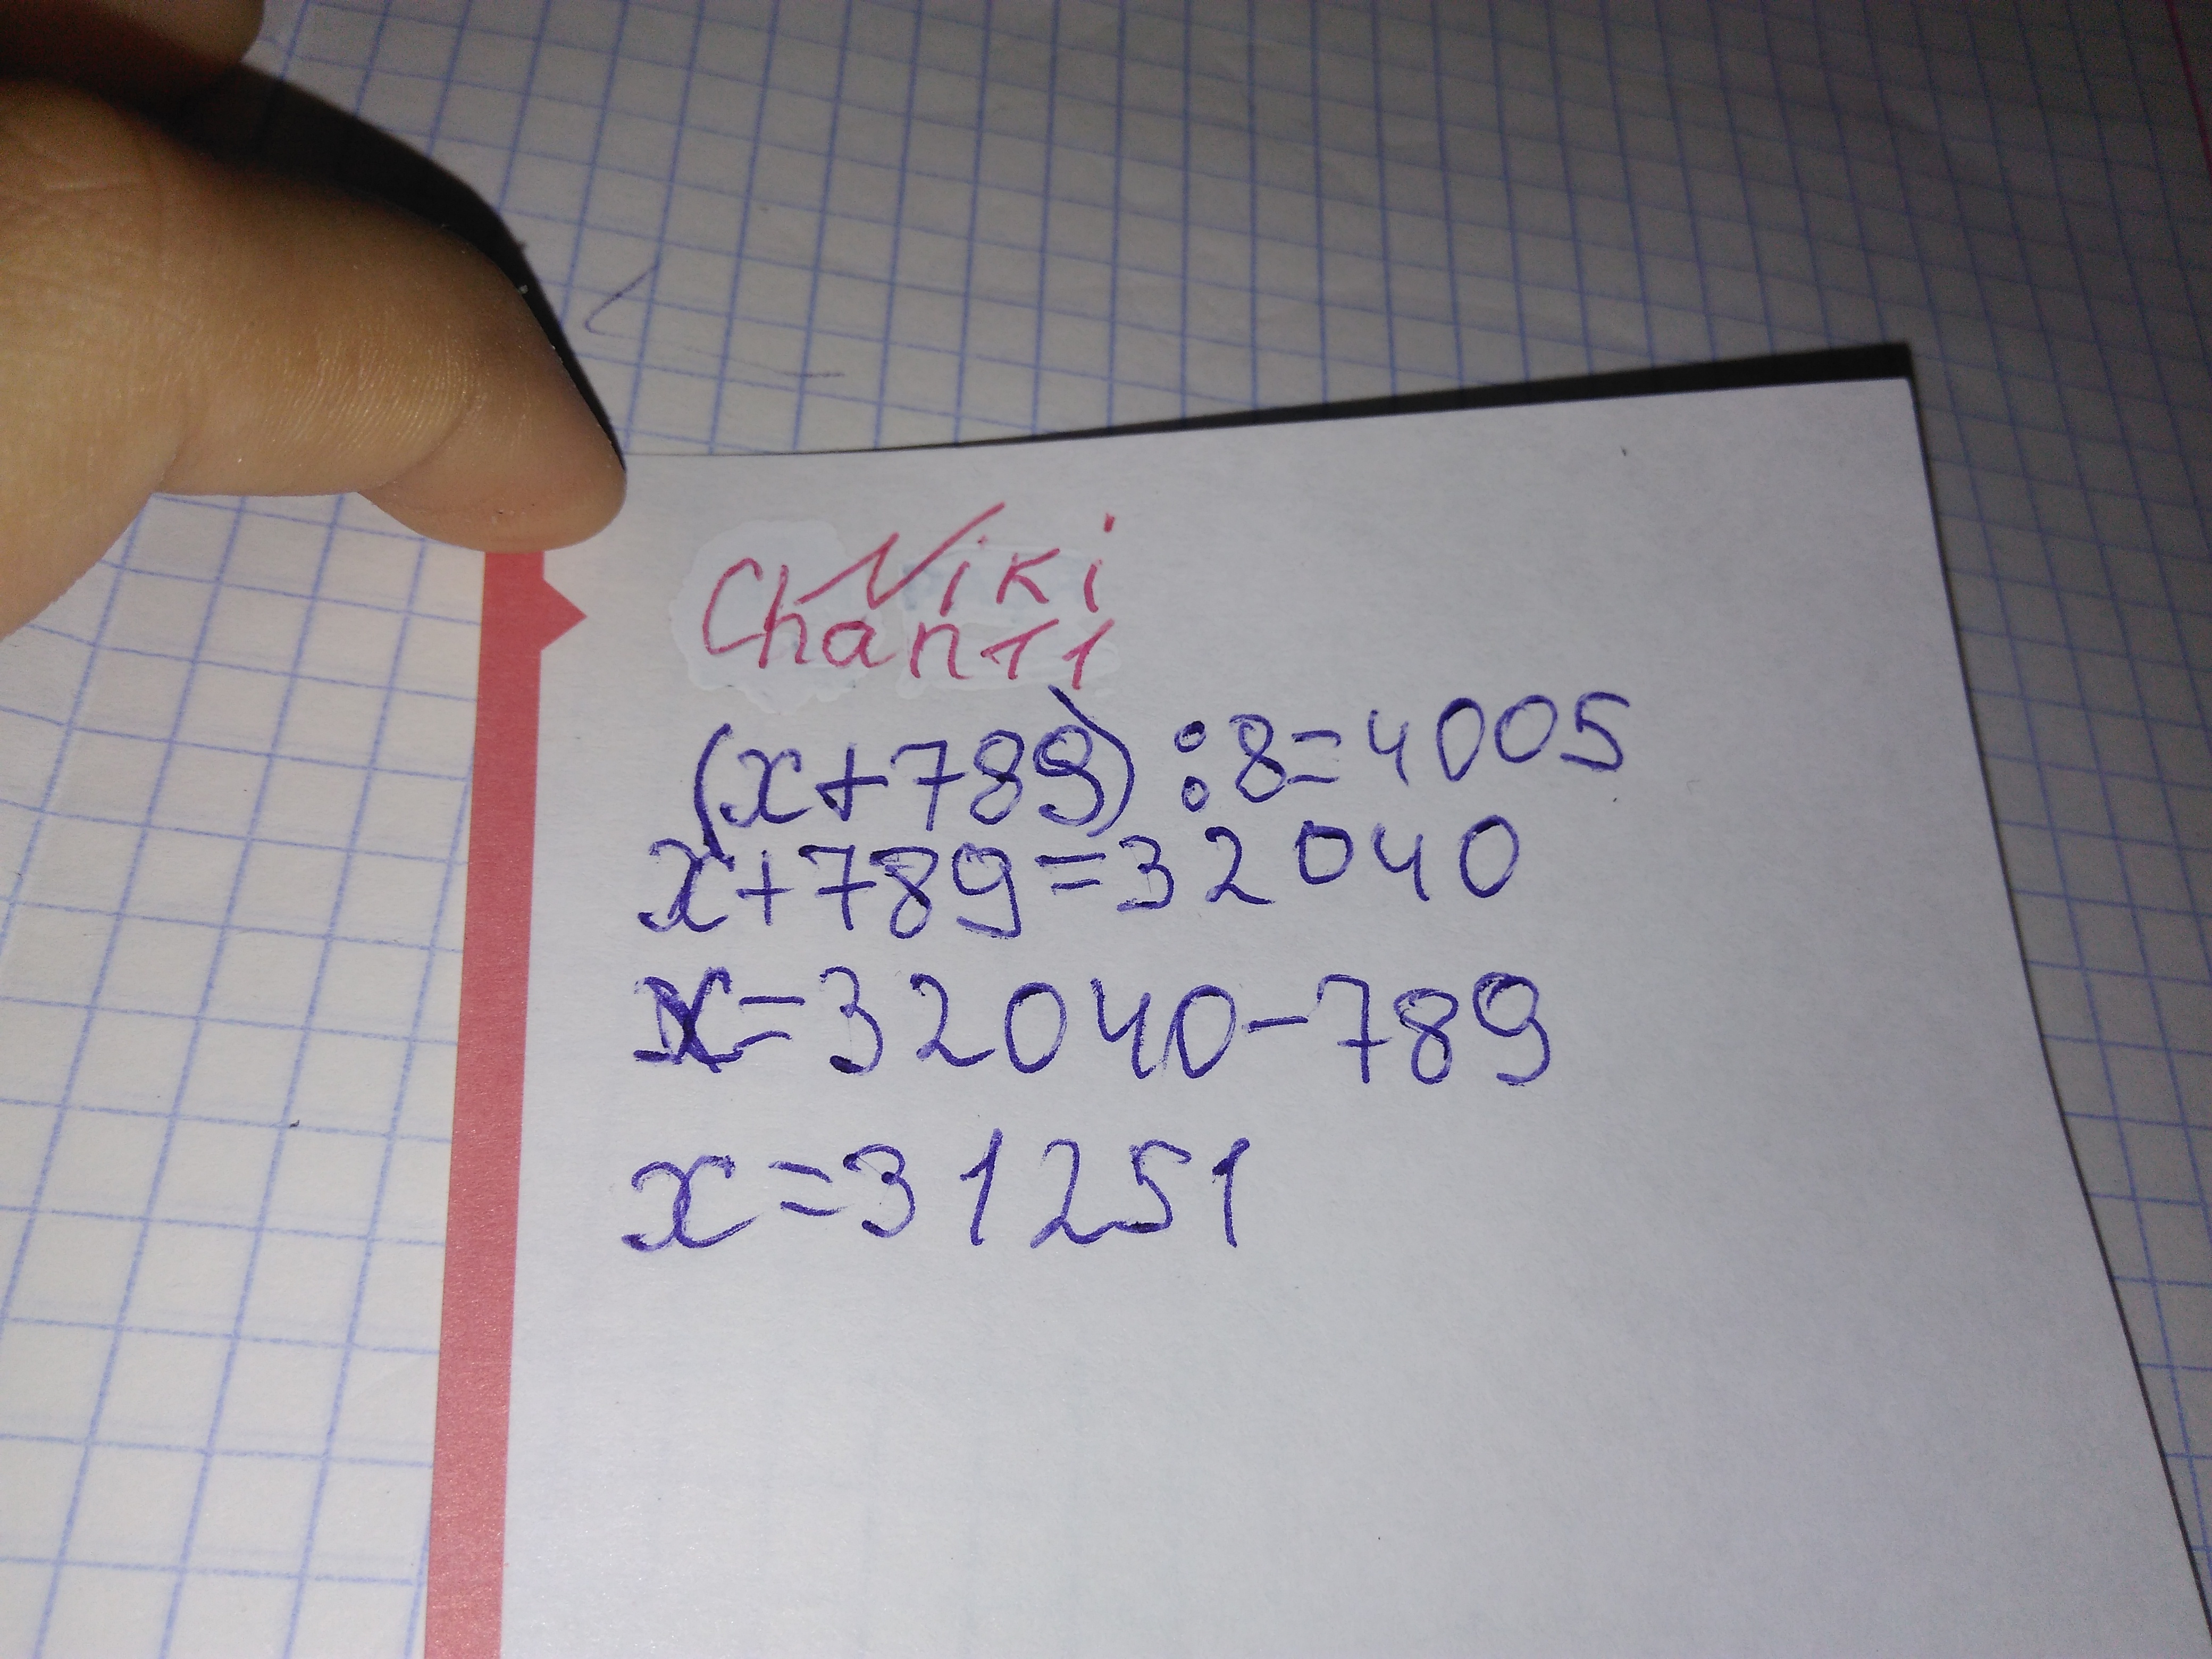 Niki
Chan11
(x+789):8=4005
x+789=32040
x=32040-789
x=31251